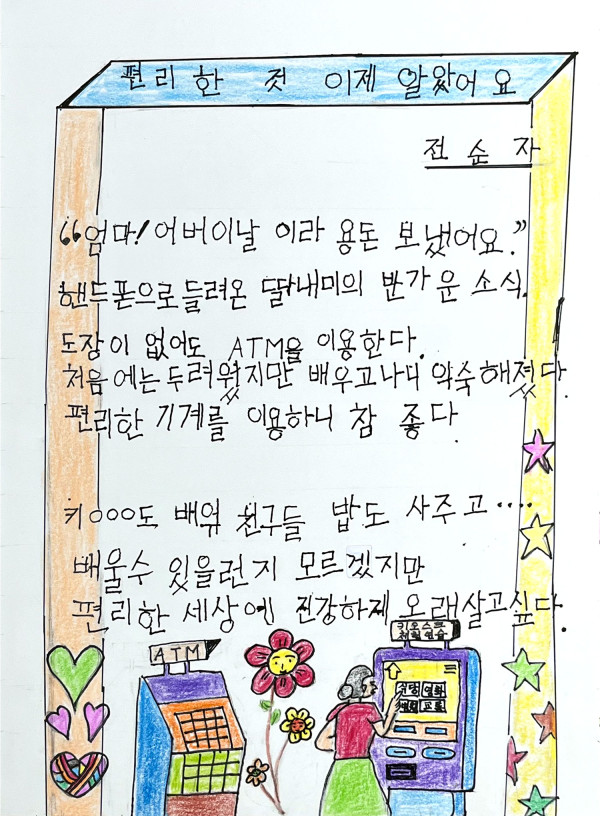 편리한 것 이제 알았어요
전순자
“엄마! 어버이날 이라 용돈 보냈어요.”
핸드폰으로들려온 딸내미의 반가운 소식.
도장이 없어도 ATM을 이용한다.
처음에는두려웠지만 배우고나니 익숙해졌다.
편리한 기계를 이용하니 참 좋다.
키○○○도 배워 친구들 밥도 사주고····
배울수 있을런지 모르겠지만
편리한 세상에 건강하게 오래살고싶다.
ATM
키오스크
체험연습